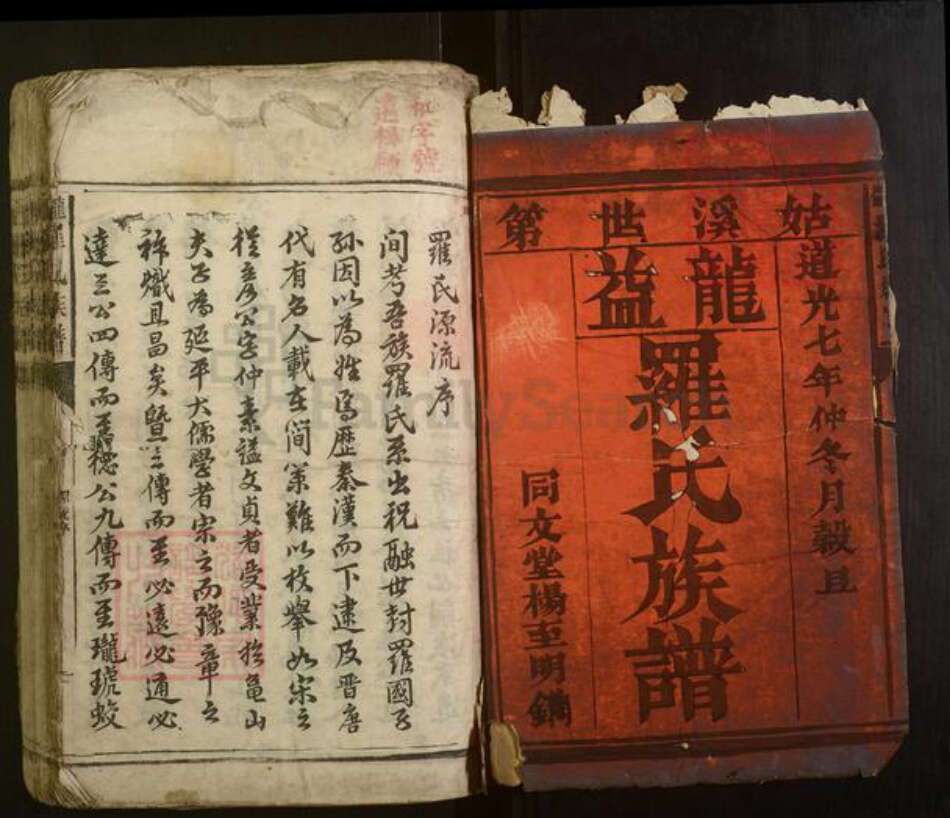 姑溪世第
道光七年仲冬月穀旦
龍益
羅氏族譜
同文堂楊至明鐫
羅氏源流序
間考吾族羅氏系出祝融世封羅國子
孫因以為姓焉歷秦漢而下逮及晋唐
代有名人載在簡策難以枚舉如宋之
從彥公字仲素謚文貞者受業於龜山
夫子為延平大儒學者宗之而豫章之
裔熾且昌矣暨三傳而至必遠必通必
達三公四傳而至聰公九傳而至瓏琥蛟
FamilySearch